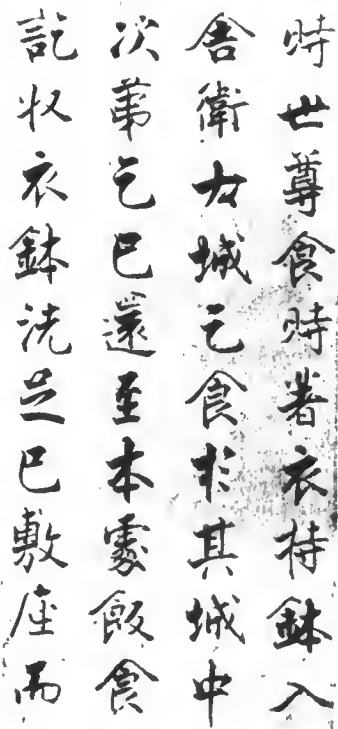 時世尊食時著衣持鉢入
舎衛大城乞食於其城中
次第乞已還至本處飯食
訖收衣鉢洗足已敷座而